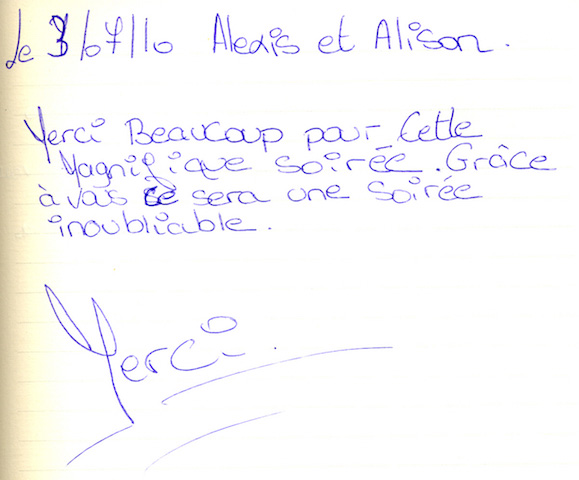 Le 3/07/10 Alexis et Alison.
Merci Beaucoup pour Cette
Magnifique soirée. Grâce
à vous ce sera une soirée
inoubliable.
Merci